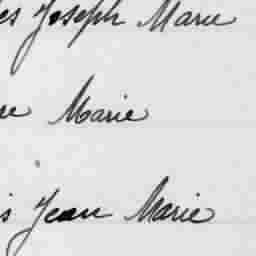 es Joseph Marie
re Marie
is Jean Marie